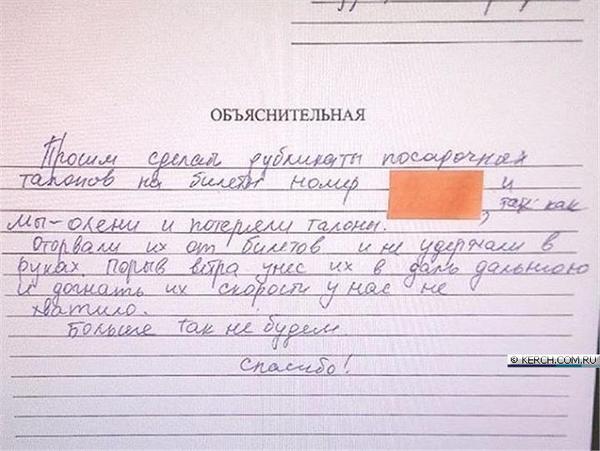 ОБЪЯСНИТЕЛЬНАЯ
Просим сделай дубликаты посадочных
талонов на билеты номер и
, так как
мы-олени и потеряли талоны.
Оторвали их от билетов и не удержали в
руках. Порыв ветра унес их в даль дальнюю
и догнать их скорости у нас не
хватило.
Больше так не будем
Спасибо!
© KERCH.COM.RU